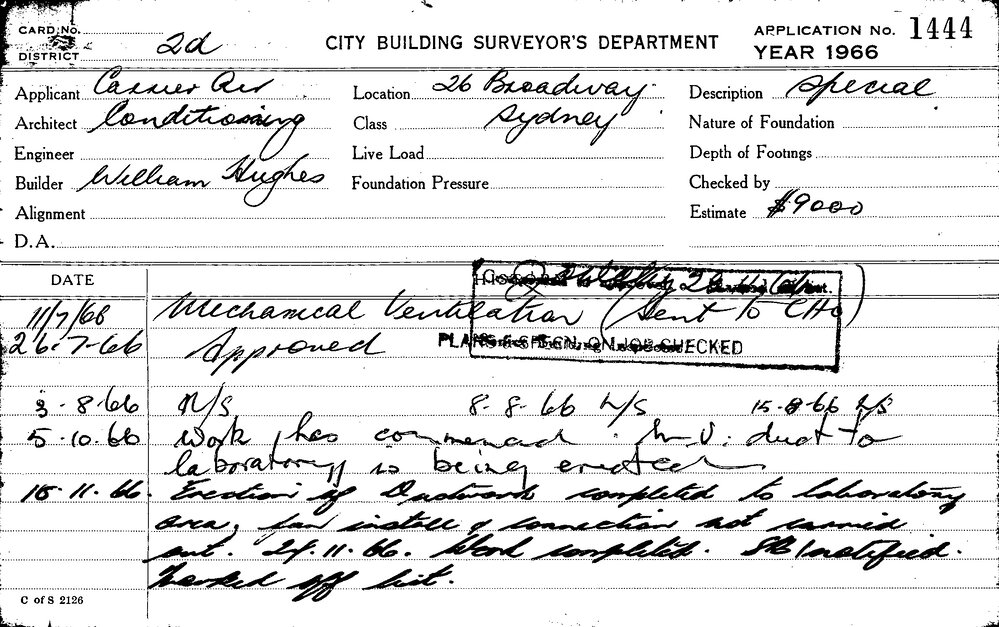 CARD No. 2d CITY BUILDING SURVEYOR'S DEPARTMENT APPLICATION No. 1444
DISTRICT YEAR 1966
Applicant Carrier Air Location 26 Broadway Description Special
Architect Conditioning Class Sydney Nature of Foundation
Engineer Live Load Depth of Footings
Builder William Hughes Foundation Pressure Checked by
Alignment Estimate $9000
D.A.
DATE
11/7/66 Mechanical Ventilation (Sent to CHO)
26-7-66 Approved PLANS CHECKED
3-8-66 N/S 8-8-66 N/S 15-8-66 N/S
5-10-66 Work has commenced. M.V. duct to
laboratory is being erected
15-11-66. Erection of Ductwork completed to laboratory
area, fan install & connection not carried
out. 24.11.66. Work completed. notified.
Marked off list.
C of S 2126